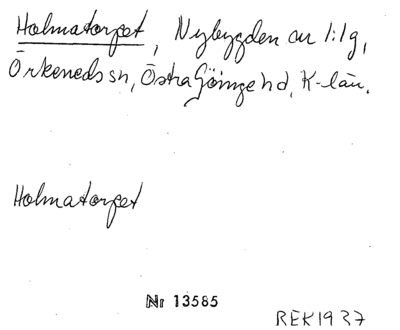 Holmatorpet, Nybygden av 1:1g,
Örkeneds sn, Östra Göinge hd, K-län.
Holmatorpet
Nr 13585
REK1937